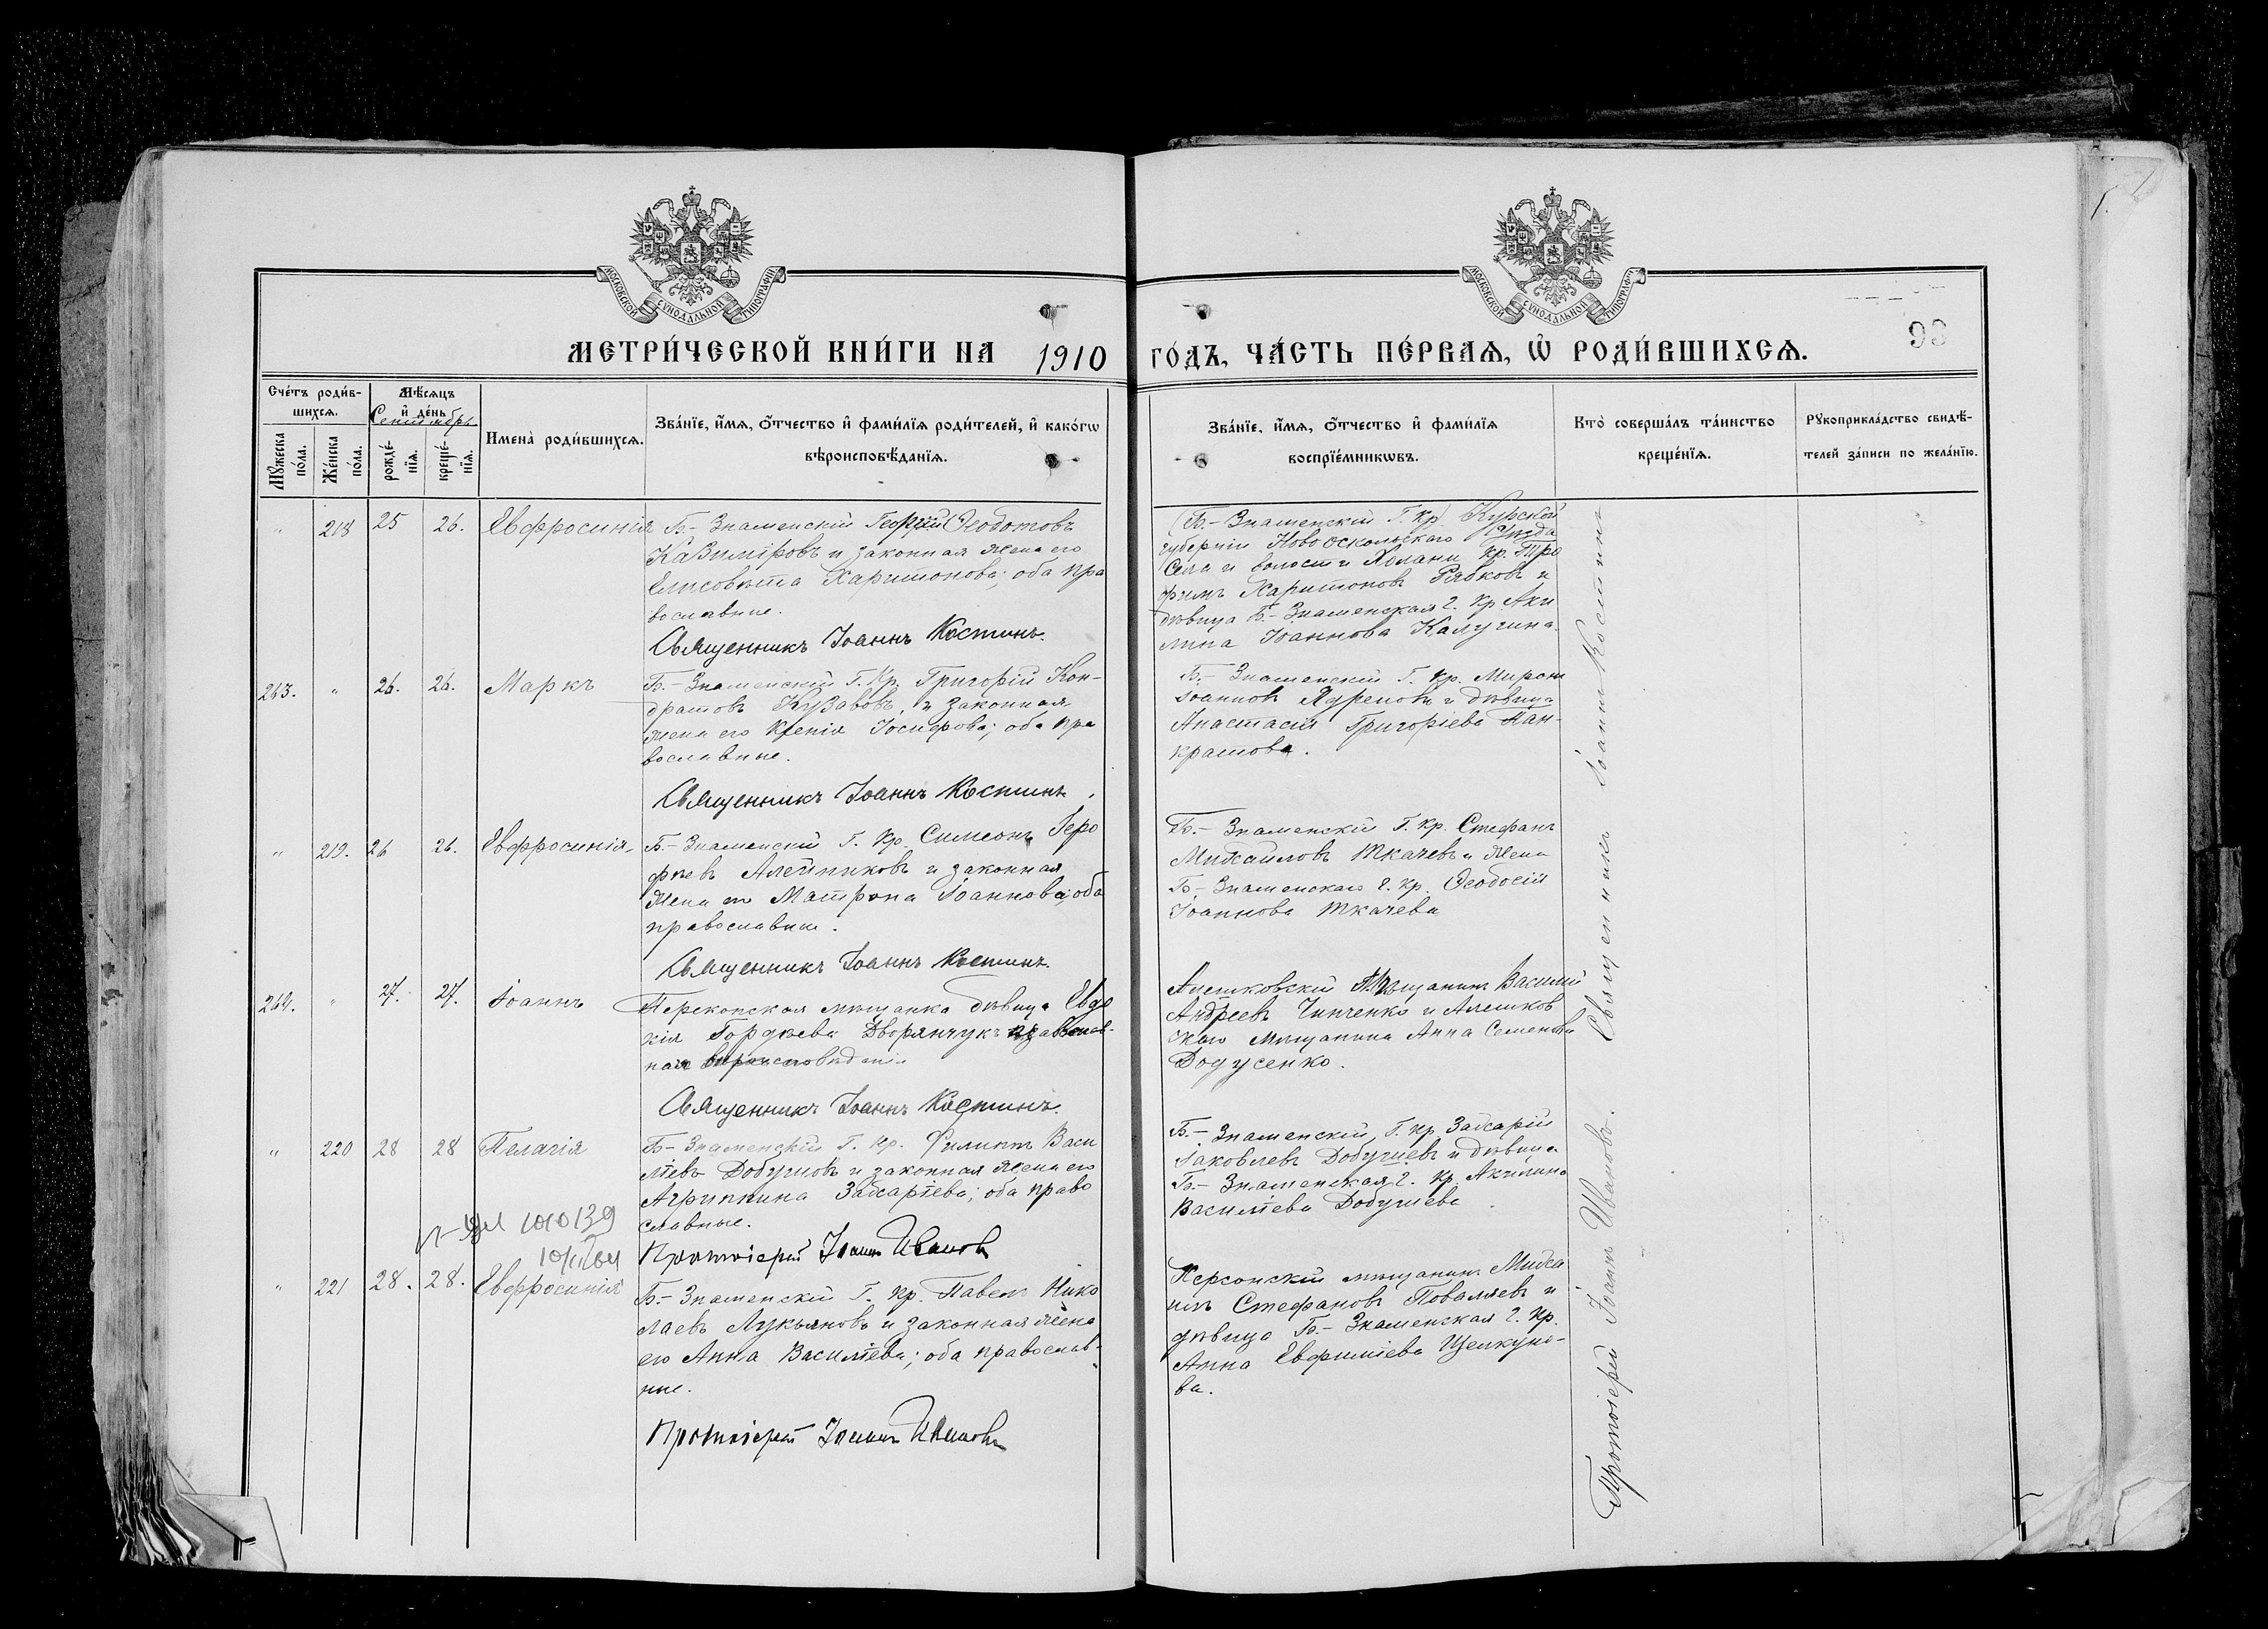 МОСКОВСКОЙ СѴНОДАЛЬНОЙ ТИПОГРАФІИ
МОСКОВСКОЙ СѴНОДАЛЬНОЙ ТИПОГРАФІИ
МЕТРИ́ЧЕСКОЙ КНИ́ГИ НА 1910 ГО́ДЪ, ЧА́СТЬ ПЕ́РВАЯ, Ѽ РОДИ́ВШИХСЯ.
Сче́тъ роди́в-
шихся.
Мѣ́сяцъ
и҆ де́нь
Сентябрь
Мꙋ́жеска по́ла.
Же́нска по́ла.
рожде́-
нїя.
креще́-
нїя.
Имена̀ роди́вшихся.
Зва́нїе, и҆́мя, ѻ҆́тчество и҆ фами́лїя роди́телей, и҆ како́гѡ
вѣроисповѣ́данїя.
Зва́нїе, и҆́мя, ѻ҆́тчество и҆ фами́лїя
воспрїе́мникѡвъ.
Кто̀ соверша́лъ та́инство
креще́нїя.
Рꙋкоприкла́дство свидѣ́-
телей за́писи по жела́нїю.
" 218 25 26. Евфросинія
Б.-Знаменскій Георгій Ѳеодотовъ
Казиміровъ и законная жена его
Елисовета Харитонова; оба пра
вославные.
Священникъ Іоаннъ Костинъ.
Б.-Знаменскій Г. Кр. Курской
губерніи Новооскольскаго Уѣзда
Села и волости Холани кр. Тро
фимъ Харитоновъ Рябковъ и
дѣвица Б.-Знаменская г. Кр. Аки
лина Іоаннова Калугина.
263. " 26. 26. Маркъ
Б.-Знаменскій Г. Кр. Григорій Кон-
дратовъ Кузавовъ, и законная
жена его Ксенія Іосифова; оба пра
вославные.
Священникъ Іоаннъ Костинъ.
Б.-Знаменскій Г. Кр. Миронъ
Іоанновъ Ядреновъ и дѣвица
Анастасія Григоріева Пан-
кратова.
" 219. 26 26. Евфросинія
Б.-Знаменскій Г. Кр. Симеонъ Геро
фіевъ Алейниковъ и законная
жена его Матрона Іоаннова; оба
православные.
Священникъ Іоаннъ Костинъ.
Б.-Знаменскій Г. Кр. Стефанъ
Михаиловъ Ткачевъ и жена
Б.-Знаменскаго г. Кр. Ѳеодосія
Іоаннова Ткачева
264. " 27. 27. Іоаннъ
Перекопская мѣщанка дѣвица Евдо
кія Гордѣева Дворянчукъ православ-
ная вѣроисповѣданія
Священникъ Іоаннъ Костинъ.
Алешковскій Мѣщанинъ Василій
Андреевъ Чинченко и Алешков
скаго мѣщанина Анна Семенова
Додусенко.
" 220 28 28 Пелагія
Б.-Знаменскій Г. Кр. Филиппъ Васи
ліевъ Добушовъ и законная жена его
Агриппина Захаріева; оба право
славные.
Протоіерей Іоаннъ Ивановъ
Б.-Знаменскій Г. Кр. Захарій
Іаковлевъ Добушевъ и дѣвица
Б.-Знаменская г. Кр. Акилина
Василіева Добушева
" 221 28. 28. Евфросинія
Б.-Знаменскій Г. Кр. Павелъ Нико
лаевъ Лукьяновъ и законная жена
его Анна Василіева; оба православ-
ные.
Протоіерей Іоаннъ Ивановъ
Херсонскій мѣщанинъ Миха
илъ Стефановъ Поваляевъ и
дѣвица Б.-Знаменская г. Кр.
Анна Евфиміева Щелкуно-
ва.
Священникъ Іоаннъ Костинъ
Протоіерей Іоаннъ Ивановъ.